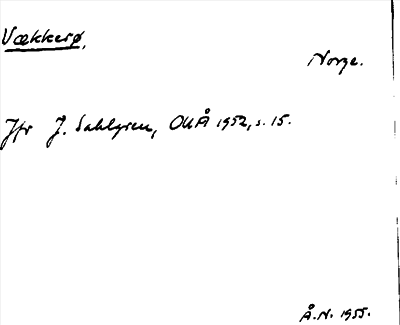 Vækkerø,
Norge.
Jfr J. Sahlgren, OUÅ 1952, s. 15.
Å.N. 1955.